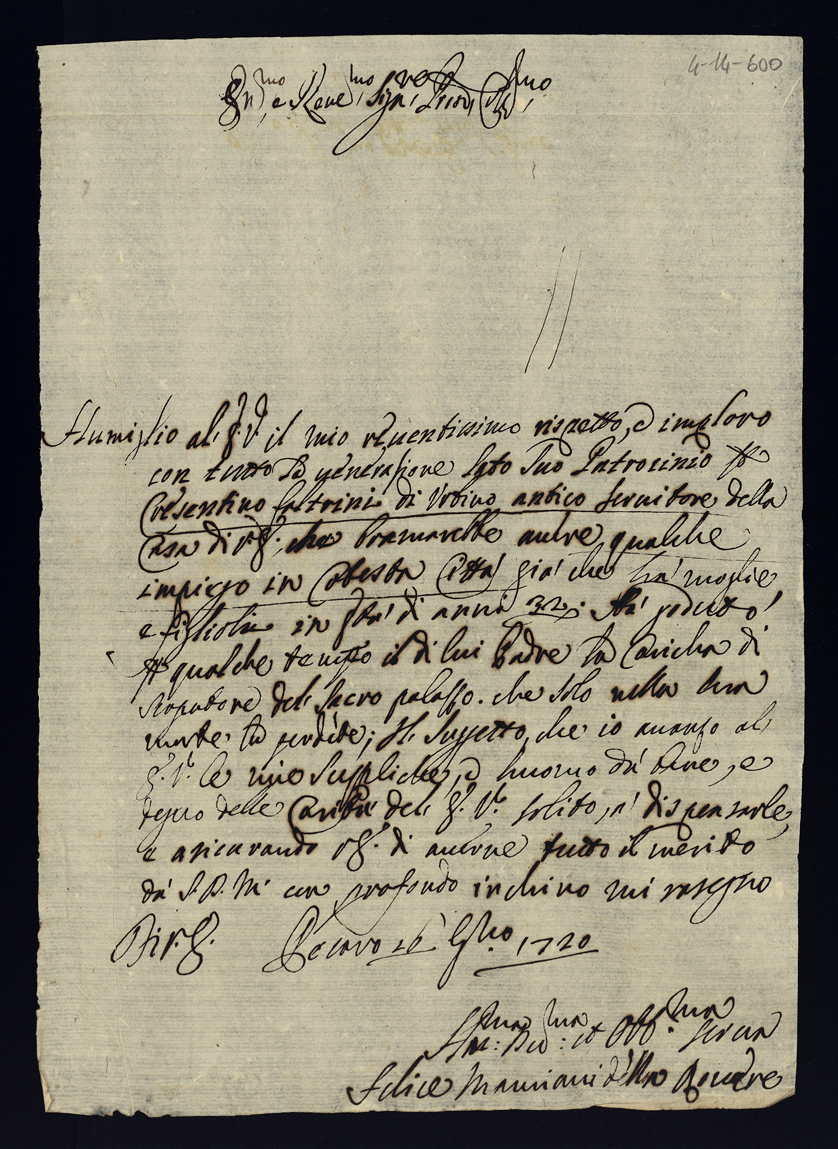 4-14-600
Em.mo e Reve.mo Sig.re Pron Col.mo
Humiglio al E. V. il mio reuentissimo rispetto, è imploro
con tutto la Suo Patrocinio p
Cresentino Fatrini di Vrbino antico seruitore della
Casa di V. E. che bramarebbe auere qualche
impiego in cotesta Città già che hà moglie
e figlioli in età di anni 32: Hà goduto
p qualche tempo il di lui Padre la Caricha di
scopatore del Sacro palasso. che solo nella sua
morte la perdete; Il Suggetto, che io auanzo al
E. V. le mie suppliche, è huomo dà bene, e
degno delle Carità del E. V. solito, à dispensarle,
e asicurando V. E. di auerne tutto il merito
dà S. D. M. con profondo inchino mi rasegno
Di V. E. Pesaro 26 G.no 1720
Hu.ma De.ma et Obb.ma serua
Felice Mamiani della Rouere